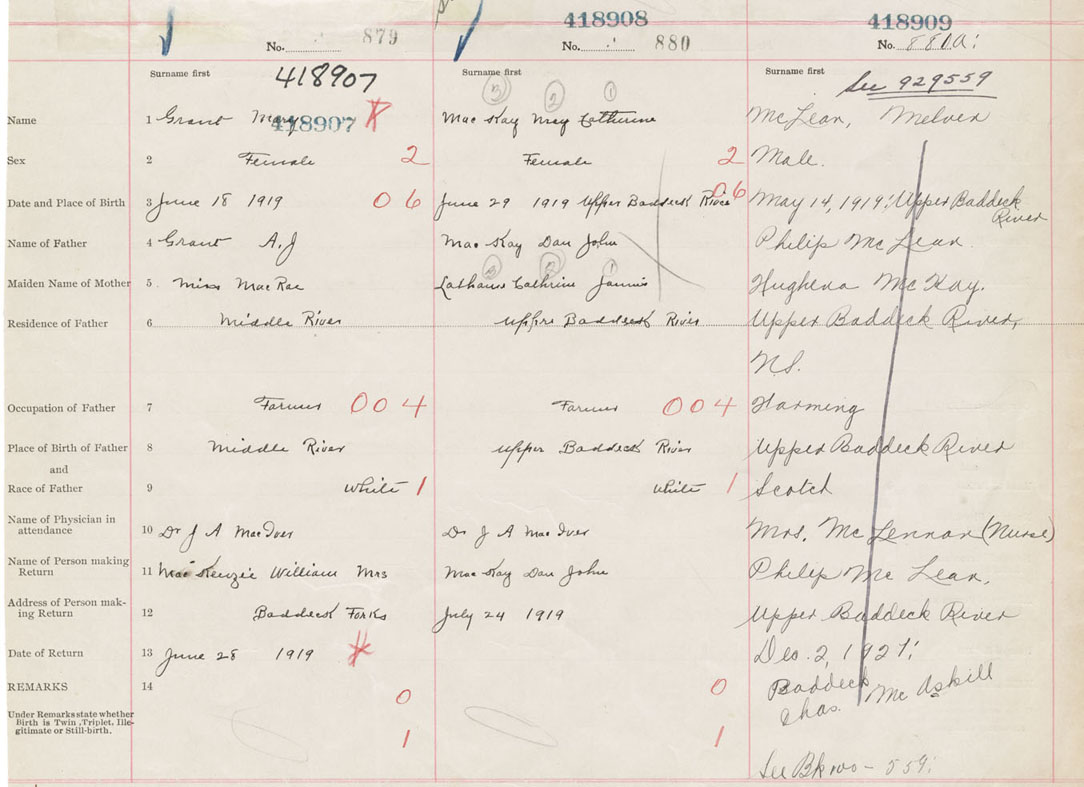 418908
418909
No. 879
No. 880
No. 881a:
Surname first
Surname first
Surname first
418907
See 929559
3 2 1
Name 1 Grant Mary 418907 Mac Kay May Catherine McLean, Melven
Sex 2 Female 2 Female 2 Male.
Date and Place of Birth 3 June 18 1919 06 June 29 1919 Upper Baddeck River 06 May 14, 1919: Upper Baddeck
River
Name of Father 4 Grant A.J Mac Kay Dan John Philip McLean
3 2 1
Maiden Name of Mother 5 Miss MacRae Catherine Hughena McKay.
Residence of Father 6 Middle River Upper Baddeck River Upper Baddeck River,
N.S.
Occupation of Father 7 Farmer 004 Farmer 004 Farming
Place of Birth of Father 8 Middle River Upper Baddeck River Upper Baddeck River
and
Race of Father 9 White 1 White 1 Scotch
Name of Physician in
attendance 10 Dr J A MacIver Dr J A MacIver Mrs. McLennan (Nurse)
Name of Person making
Return 11 Mac Kenzie William Mrs Mac Kay Dan John Philip McLean,
Address of Person mak-
ing Return 12 Baddeck Forks July 24 1919 Upper Baddeck River
Date of Return 13 June 28 1919 Dec. 2, 1927:
REMARKS 14 0 0 Baddeck
Chas. McAskill
Under Remarks state whether
Birth is Twin, Triplet, Ille-
gitimate or Still-birth.
1 1
See Bk no - 559: